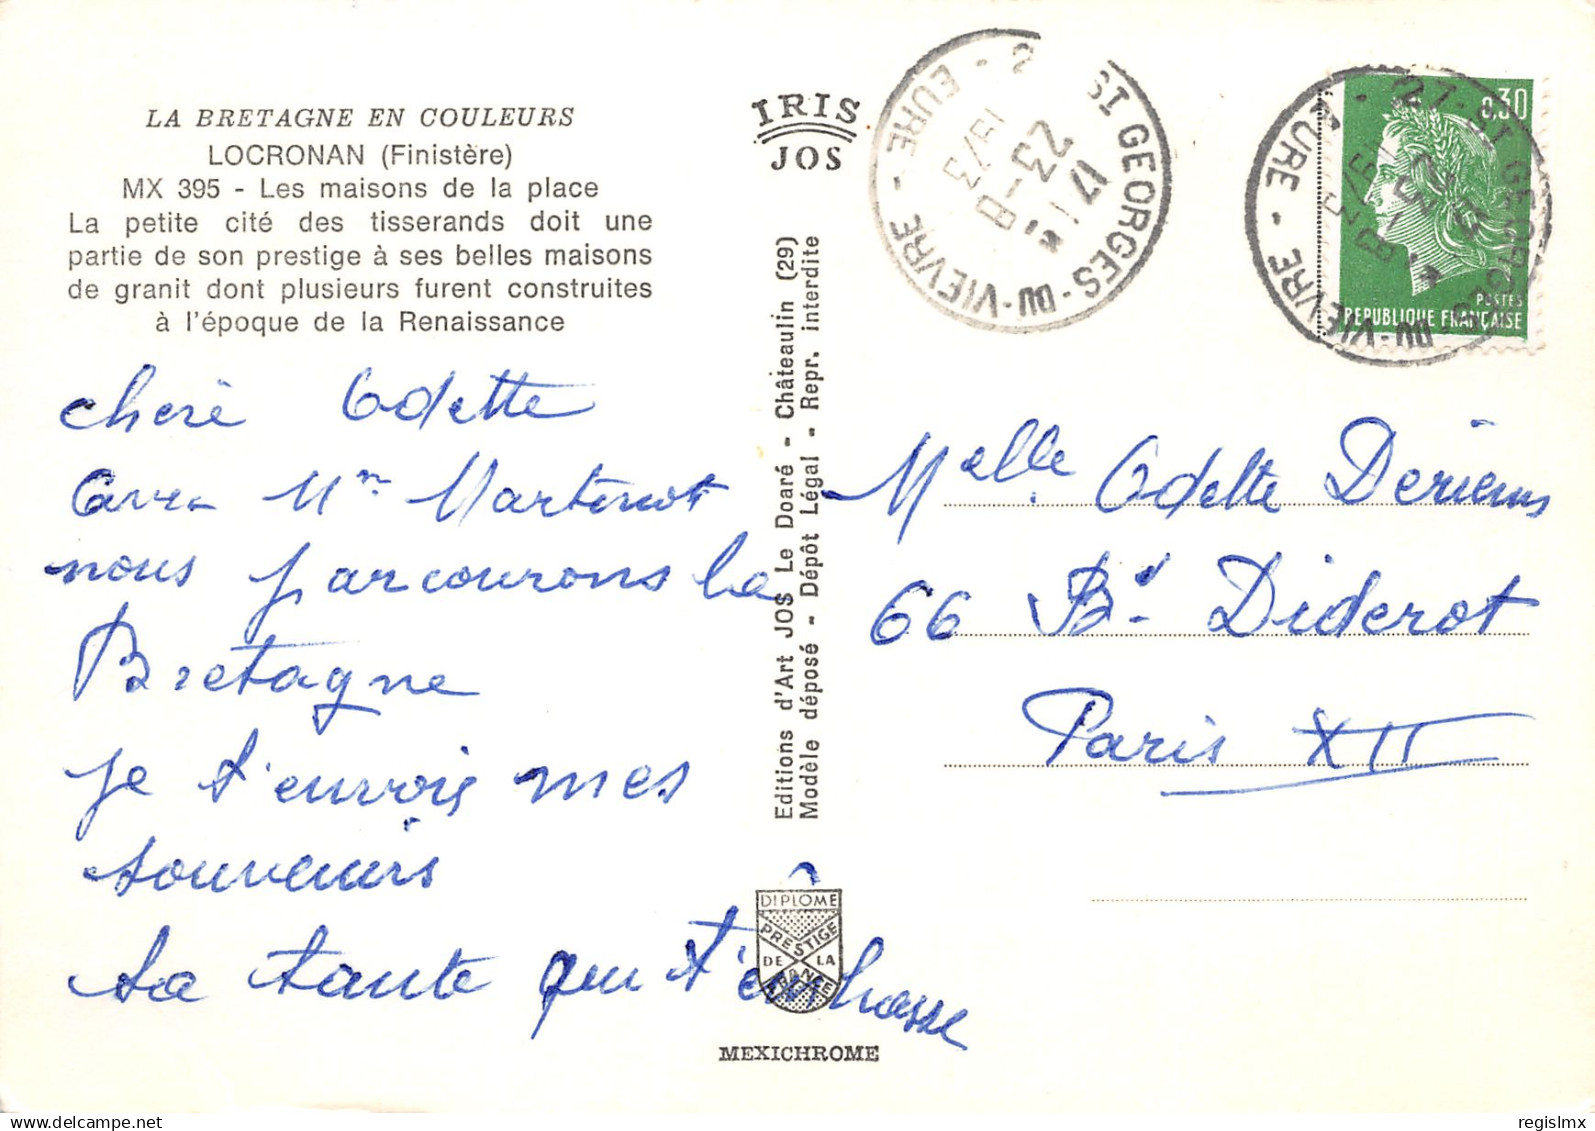 LA BRETAGNE EN COULEURS
LOCRONAN (Finistère)
MX 395 - Les maisons de la place
La petite cité des tisserands doit une
partie de son prestige à ses belles maisons
de granit dont plusieurs furent construites
à l'époque de la Renaissance
cherè Odette
avec Mr Martinot
nous parcourons la
Bretagne
je t'envoie mes
souvenirs
ta tante qui t'embrasse
IRIS
JOS
Editions d'Art JOS Le Doaré - Châteaulin (29)
Modèle déposé - Dépôt Légal - Repr. interdite
DIPLOME
PRESTIGE
DE LA
FRANCE
MEXICHROME
ST GEORGES-DU-VIEVRE - EURE - 2
17H
23-8
1973
27-ST GEORGES-DU-VIEVRE - EURE -
23-8
1973
0,30
POSTES
REPUBLIQUE FRANÇAISE
Melle Odette Deriems
66 Bd Diderot
Paris XII
regislmx